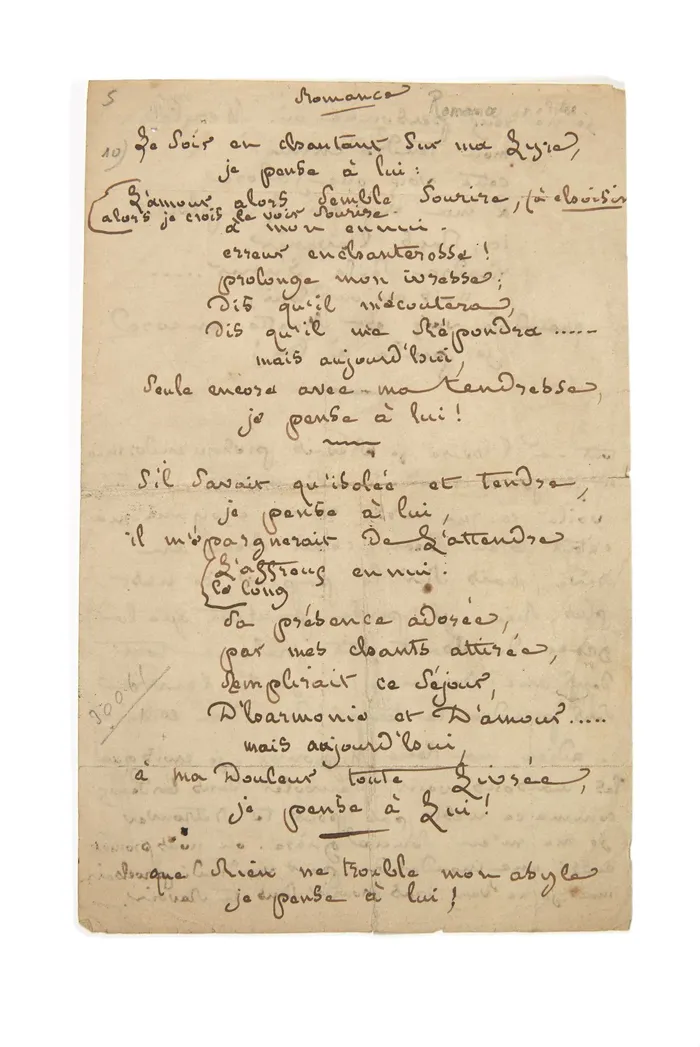 5
Romance
Romance
10)
Le soir en chantant sur ma Lyre,
je pense à lui :
L'amour alors semble sourire, (à choisir
alors je crois le voir sourire.
à mon ennui.
erreur enchanteresse !
prolonge mon ivresse ;
Dis qu'il m'écoutera,
Dis qu'il me Répondra .....
mais aujourd'hui,
Seule encore avec ma tendresse,
je pense à lui !
S'il savait qu'isolée et tendre,
je pense à lui,
il m'épargnerait De L'attendre
L'affreux ennui.
le long
Sa présence adorée,
par mes chants attirée,
Remplirait ce Séjour,
D'harmonie et D'amour .....
mais aujourd'hui,
à ma Douleur toute Livrée,
je pense à Lui !
que Rien ne trouble mon asyle
je pense à lui !